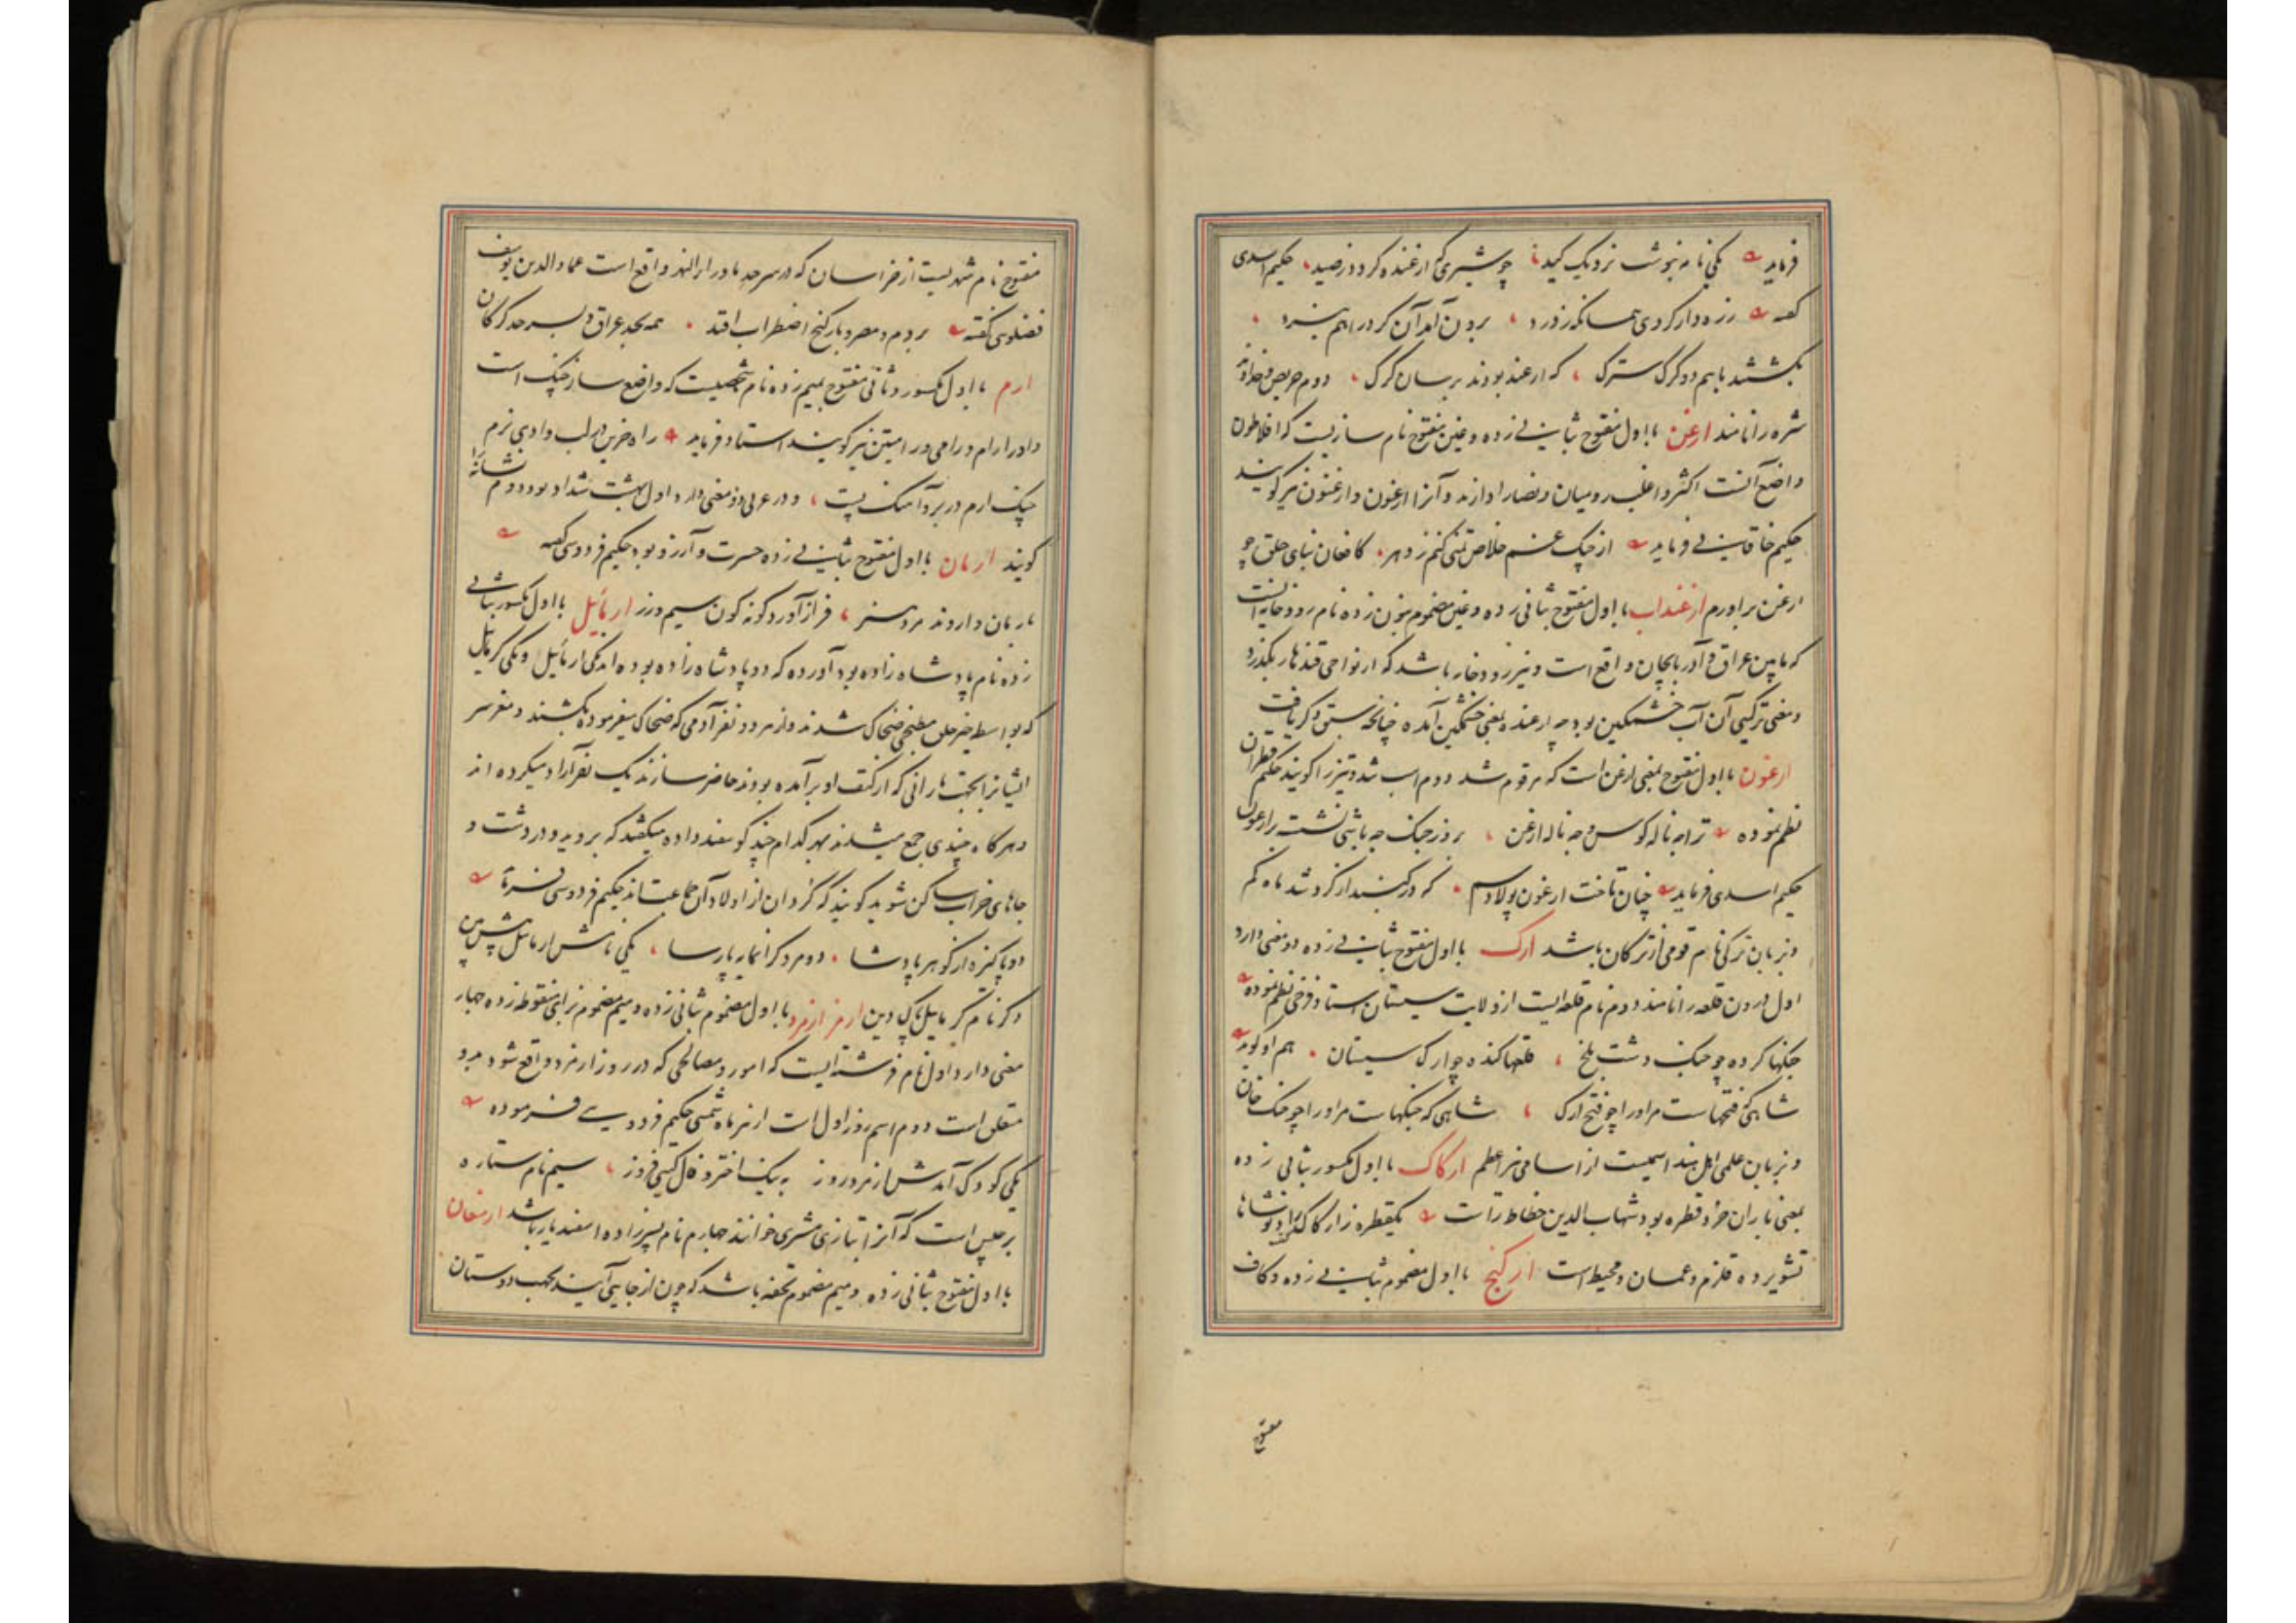 فرماید یکی نامه بنوشت نزدیک کید چو شیری که ارغنده گردد ز صید حکیم اسدی
گفته زره‌دار گردی همانگه ز گرد برون آمد آن گرد را هم نبرد
بکشتند باهم دو گرگ سترگ که ارغند بودند برسان گرگ دوم حریص و خداوند
شره را نامند ارغن با اول مفتوح بثانی زده و غین مفتوح نام سازیست که افلاطون
واضع آنست اکثر و اغلب رومیان و نصارا دارند و آنرا ارغون و ارغنون نیز گویند
حکیم خاقانی فرماید از چنگ غم خلاص تمنی کنم ز دهر کافغان بنای حلق چو
ارغن براورم ارغنداب با اول مفتوح بثانی زده و غین مضموم بنون زده نام رودخانه ایست
که مابین عراق و آذربایجان واقع است و نیز رودخانه باشد که از نواحی قندهار بگذرد
و معنی ترکیبی آن آب خشمگین بود چه ارغنده بمعنی خشمگین آمده چنانچه سبق ذکر یافت
ارغون با اول مفتوح بمعنی ارغن است که مرقوم شد دوم اسب تند و تیز را گویند حکیم قطران
نظم نموده ترا چه ناله کوس و چه ناله ارغن بروز جنگ چه باشی نشسته بر ارغون
حکیم اسدی فرماید چنان تاخت ارغون پولادسم که در گنبد از گرد شد ماه گم
و بزبان ترکی نام قومی از ترکان باشد ارک با اول مفتوح بثانی زده دو معنی دارد
اول درون قلعه را نامند دوم نام قلعه ایست از ولایت سیستان استاد فرخی نظم نموده
جنگها کرده چو جنگ دشت بلخ قلعها کنده چو ارک سیستان هم او گوید
شاهی که فتحهاست مر او را چو فتح ارک شاهی که جنگهاست مر او را چو جنگ خان
و بزبان علمی اهل هند اسمیست از اسامی نیر اعظم ارکاک با اول مکسور بثانی زده
بمعنی باران خرد قطره بود شهاب الدین خطاط راست یکقطره ز ارکاک
تشویرده قلزم و عمان و محیط است ارکنج با اول مضموم بثانی زده و کاف
مفتوح
مفتوح نام شهریست از خراسان که در سرحد ماوراء النهر واقع است عماد الدین یوسف
فضلوی گفته بروم و مصر و بارکنج اضطراب افتد همه بحد عراق و بسرحد گرگان
ارم با اول مکسور و ثانی مفتوح بمیم زده نام شخصیست که واضع ساز چنگ است
و او را رام و رامی و رامتین نیز گویند استاد فرماید راه خزین در لب وادی نرم
چنگ ارم در بر و آهنگ پست و در عربی دو معنی دارد اول بهشت شداد بود دوم نشانه را
گویند ارمان با اول مفتوح بثانی زده حسرت و آرزو بود حکیم فردوسی گفته
بارمان و اروند مرد هنر فراز آورد گونه گون سیم و زر ارمائیل با اول مکسور بثانی
زده نام پادشاه زاده بود آورده که دو پادشاه زاده بوده اند یکی ارمائیل و یکی کرمائیل
که بواسطه خیر حلق مطبخی ضحاک شدند و از هر دو نفر آدمی که ضحاک میفرموده بکشند و مغز سر
ایشانرا بجهت مارانی که از کتف او برآمده بودند حاضر سازند یک نفر آزاد میکرده اند
و هرگاه چندی جمع میشدند بهر کدام چند گوسفند داده میگفتند که بروید و در دشت و
جاهای خراب ساکن شوید گویند که کردان از اولاد آن جماعت اند حکیم فردوسی فرماید
دو پاکیزه از گوهر پادشا دو مرد گرانمایه پارسا یکی نامش ارمائیل پیش بین
دگر نام کرمائیل پاک دین ارمز ارمزد با اول مضموم بثانی زده و میم مضموم بزای منقوطه زده چهار
معنی دارد اول نام فرشته ایست که امور و مصالحی که در روز ارمزد واقع شود بدو
متعلق است دوم اسم روز اول است از هر ماه شمسی حکیم فردوسی فرموده
یکی کودک آمدش ارمزد روز به نیک اختر و فال گیتی فروز سیم نام ستاره
برجیس است که آنرا بتازی مشتری خوانند چهارم نام پسرزاده اسفندیار باشد ارمغان
با اول مفتوح بثانی زده و میم مضموم تحفه باشد که چون از جایی آیند بجهت دوستان